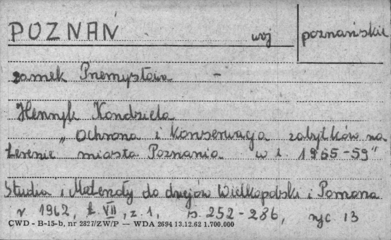 POZNAŃ woj poznańskie
zamek Przemysława -
Henryk Kondziela
„Ochrona i konserwacja zabytków na
terenie miasta Poznania w l. 1955-59"
Studia i Materiały do dziejów Wielkopolski i Pomorza
r. 1962, t. VII, z. 1, s. 252-286, ryc 13
CWD - B-15-b, nr 2827/ZW/P — WDA 2694 13.12.62 1.700.000